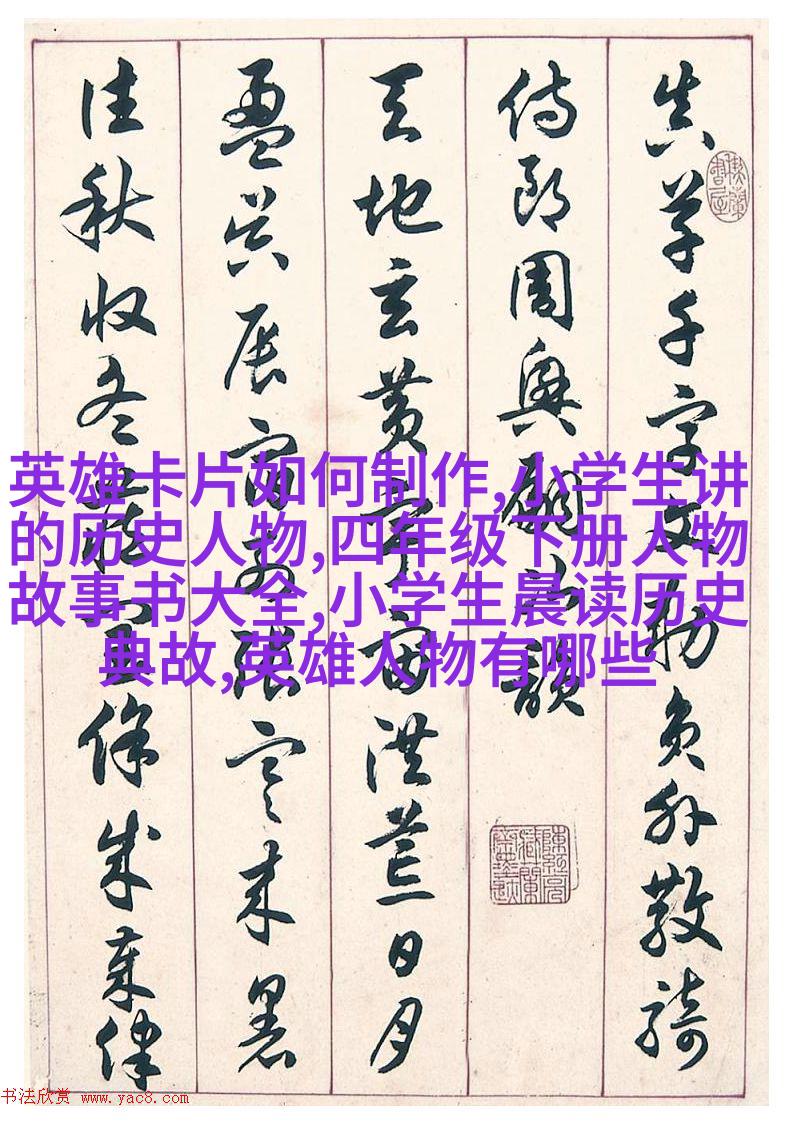 真草千字文勅員外散騎
侍郎周興嗣次韻
天地玄黄宇宙洪荒日月
盈昃辰宿列張寒来暑
往秋收冬藏閏餘成歲律
英雄卡片如何制作,小学生讲
的历史人物,四年级下册人物
故事书大全,小学生晨读历史
典故,英雄人物有哪些
书法欣赏 www.yac8.com